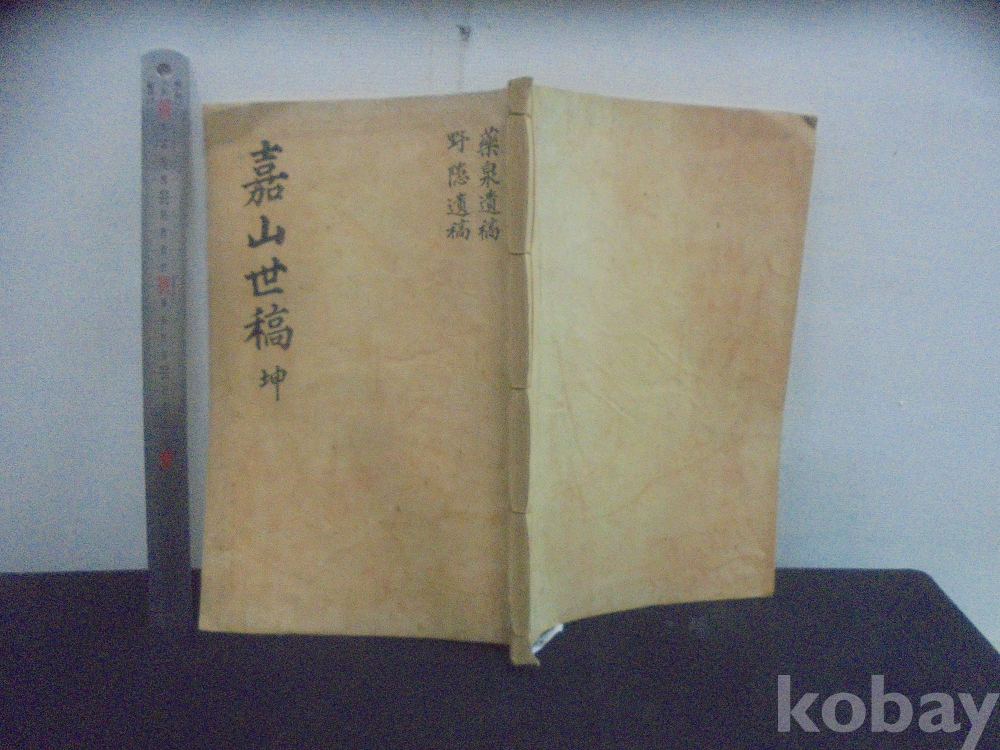 嘉山世稿 坤
藥泉遺稿
野隱遺稿
kobay